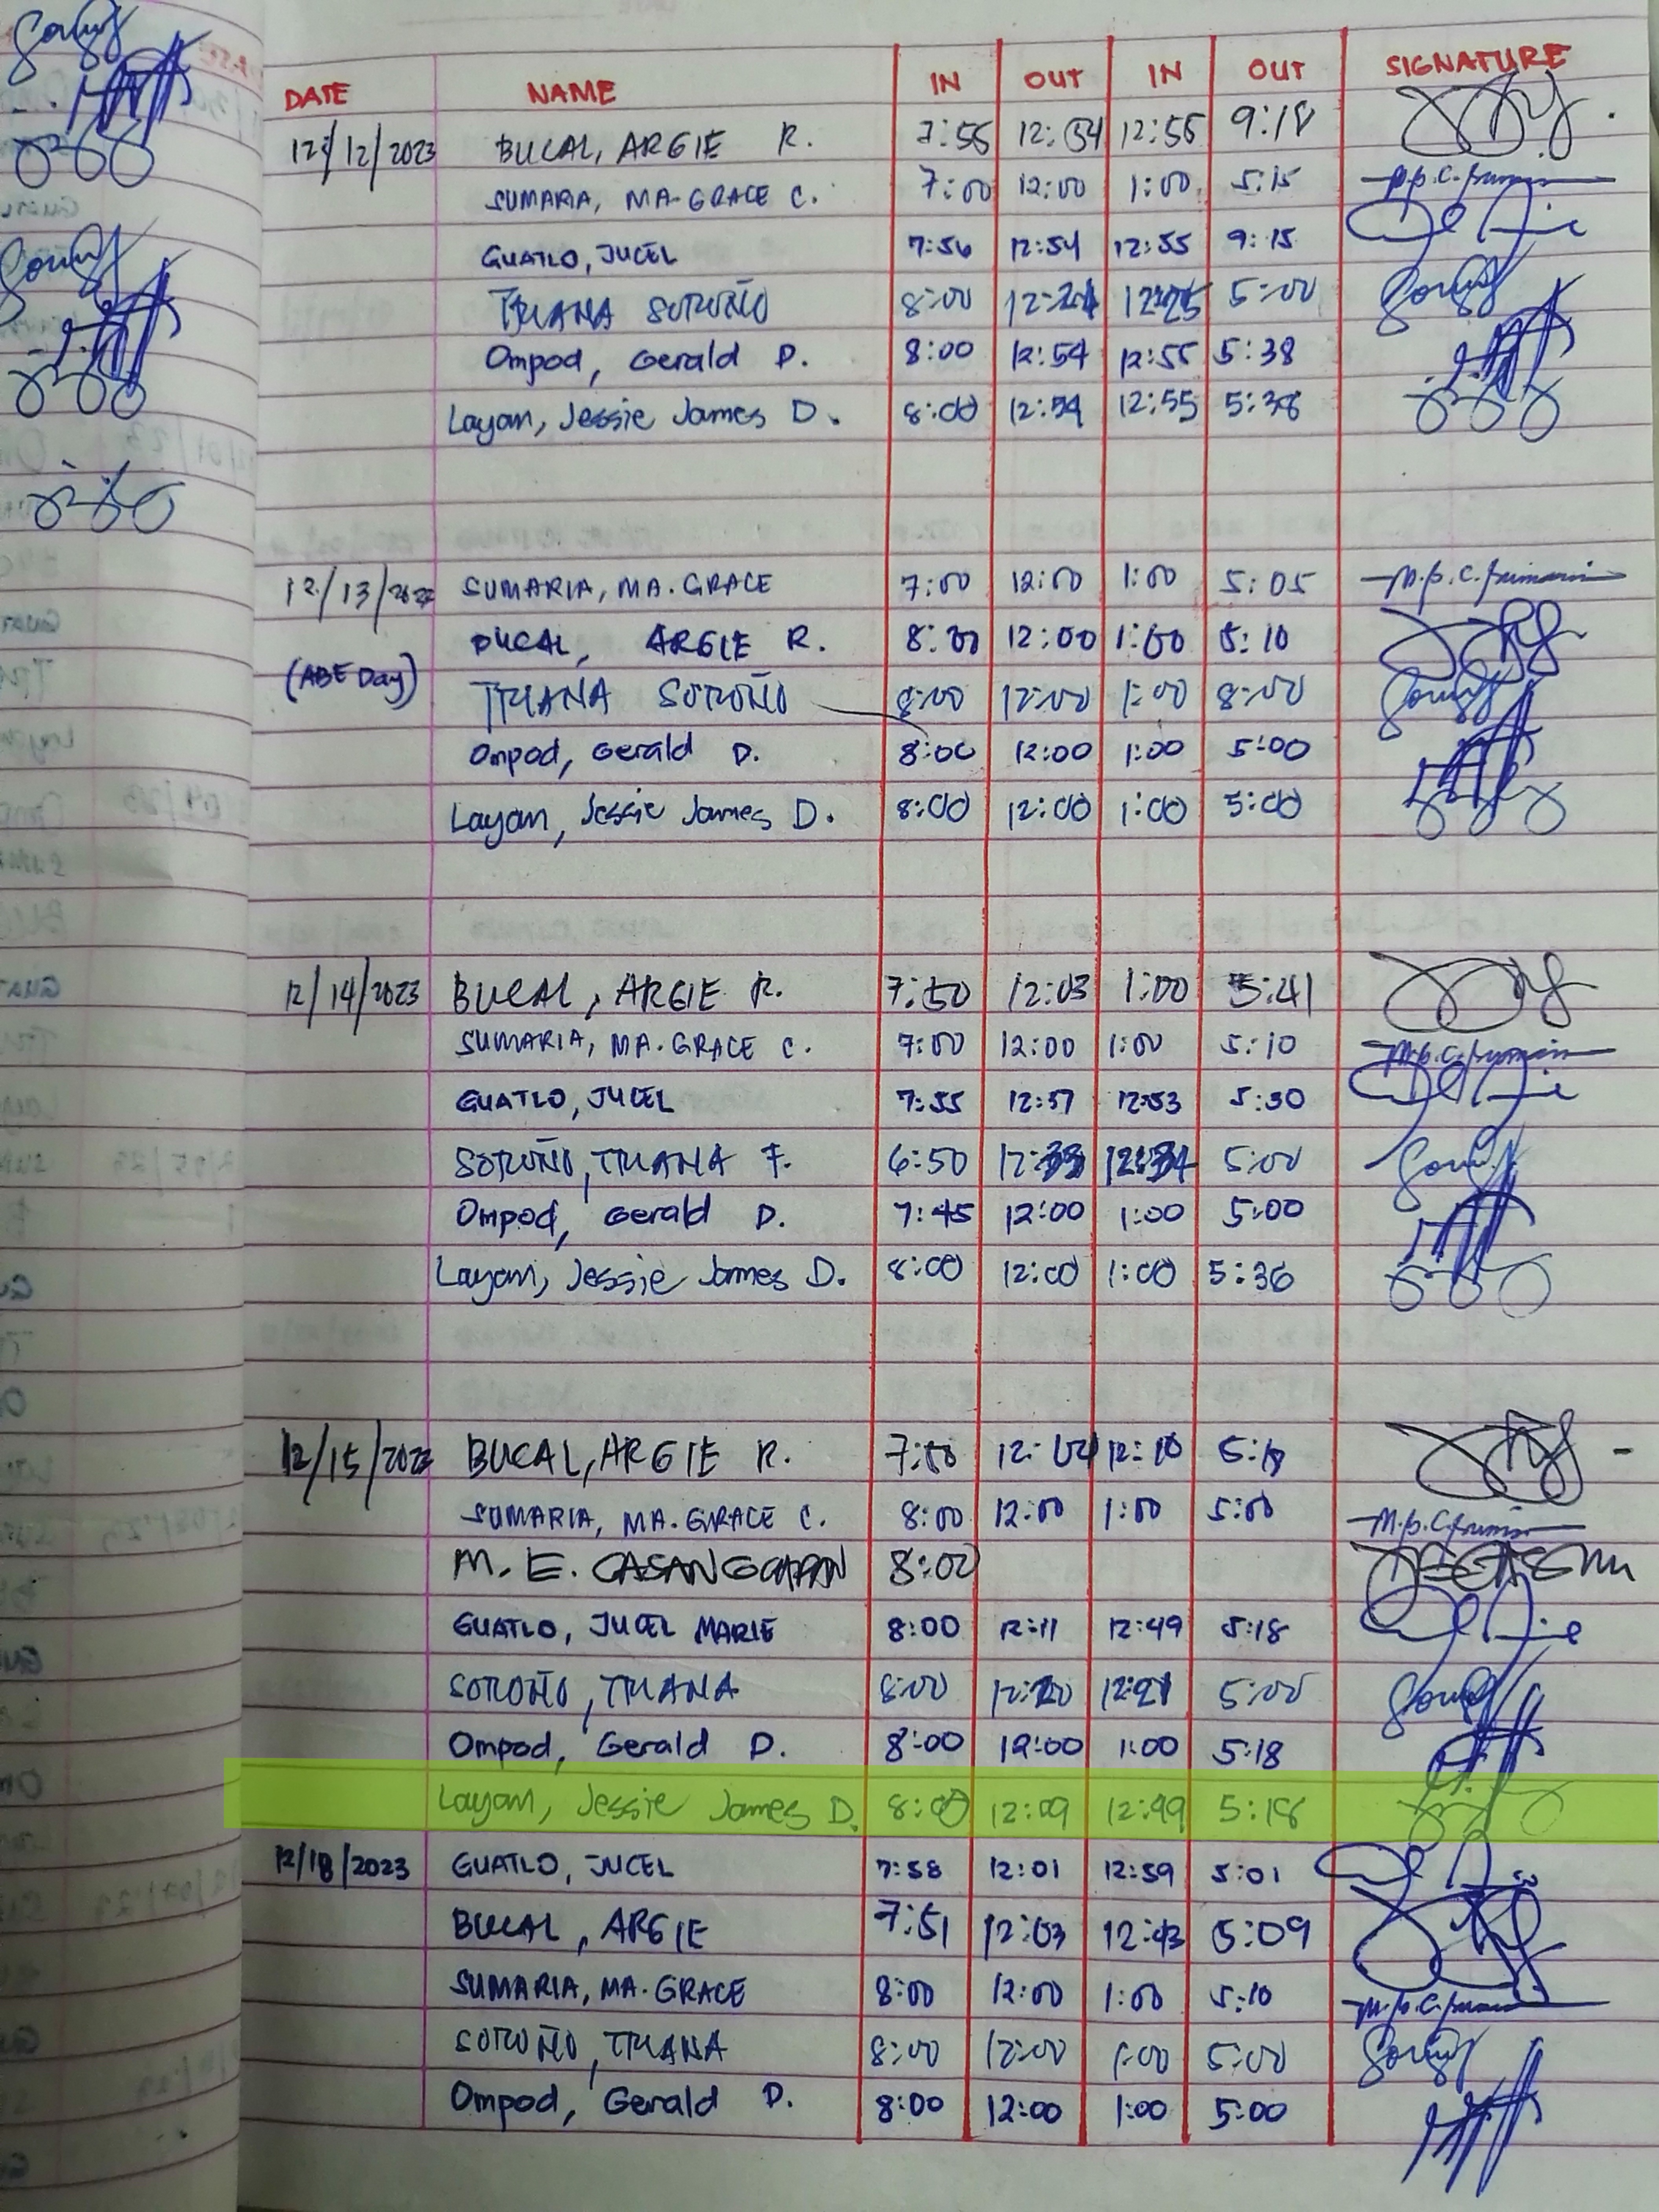 DATE NAME IN OUT IN OUT SIGNATURE
12/12/2023 BUCAL, ARGIE R. 7:55 12:54 12:55 9:18
SUMARIA, MA. GRACE C. 7:00 12:00 1:00 5:15
GUATLO, JUCEL 7:56 12:54 12:55 9:15
TRIANA SOROÑO 8:00 12:24 12:25 5:00
Ompod, Gerald D. 8:00 12:54 12:55 5:38
Layam, Jessie James D. 8:00 12:54 12:55 5:38
12/13/2023 SUMARIA, MA. GRACE 7:00 12:00 1:00 5:05
BUCAL, ARGIE R. 8:00 12:00 1:00 5:10
(ABE Day) TRIANA SOROÑO 8:00 12:00 1:00 8:00
Ompod, Gerald D. 8:00 12:00 1:00 5:00
Layam, Jessie James D. 8:00 12:00 1:00 5:00
12/14/2023 BUCAL, ARGIE R. 7:50 12:03 1:00 5:41
SUMARIA, MA. GRACE C. 7:00 12:00 1:00 5:10
GUATLO, JUCEL 7:55 12:57 12:53 5:30
SOROÑO, TRIANA F. 6:50 12:33 12:34 5:00
Ompod, Gerald D. 7:45 12:00 1:00 5:00
Layam, Jessie James D. 8:00 12:00 1:00 5:36
12/15/2023 BUCAL, ARGIE R. 12:10
SUMARIA, MA. GRACE C. 8:00 12:00 1:00 5:00
M. E. CASANGCAPAN 8:00
GUATLO, JUCEL MARIE 8:00 12:11 12:49 5:18
SOROÑO, TRIANA 8:00 12:20 12:21 5:00
Ompod, Gerald D. 8:00 12:00 1:00 5:18
Layam, Jessie James D. 8:00 12:09 12:49 5:18
12/18/2023 GUATLO, JUCEL 7:58 12:01 12:59 5:01
BUCAL, ARGIE 7:51 12:03 12:43 5:09
SUMARIA, MA. GRACE 8:00 12:00 1:00 5:10
SOROÑO, TRIANA 8:00 12:00 1:00 5:00
Ompod, Gerald D. 8:00 12:00 1:00 5:00